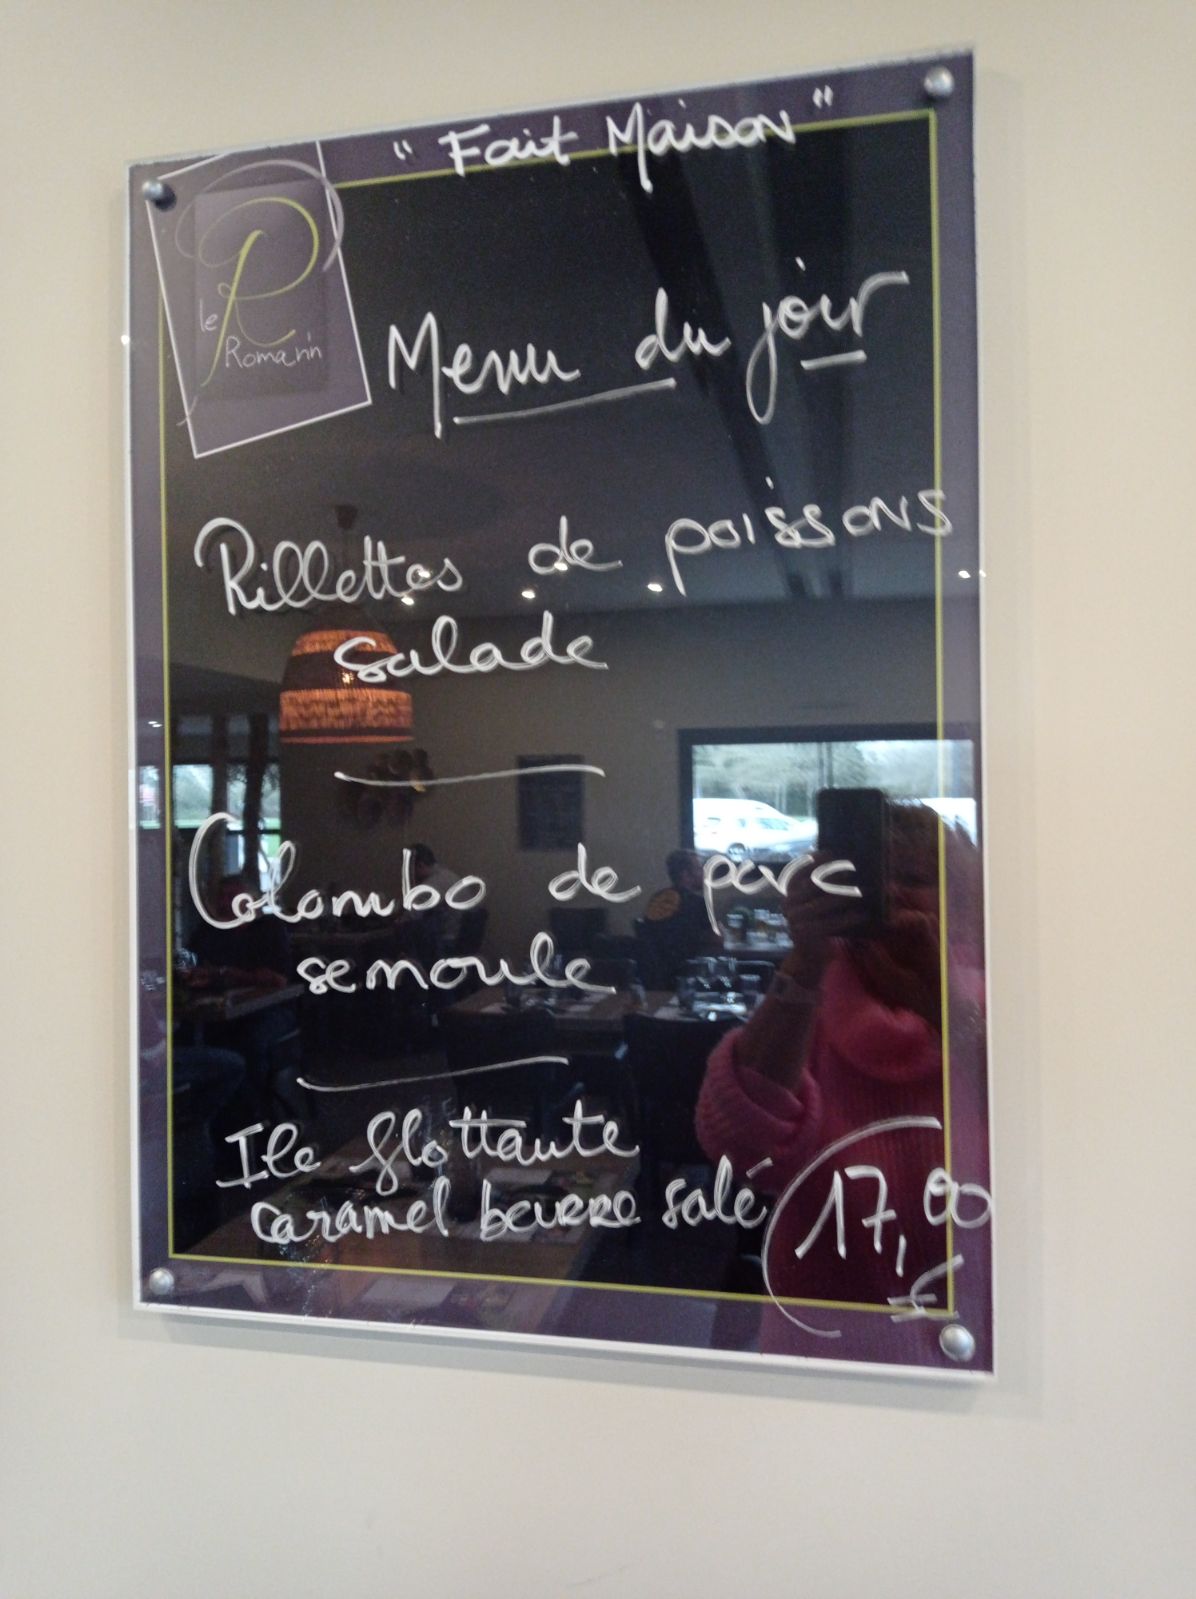 " Fait Maison "
le
R
Romarin
Menu du jour
Rillettes de poissons
salade
Colombo de porc
semoule
Ile flottante
caramel beurre salé
17,00
€